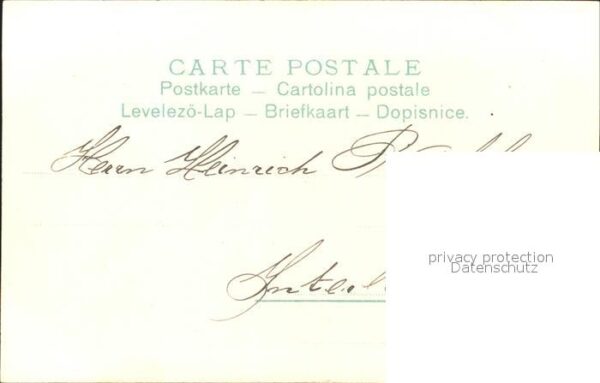 CARTE POSTALE
Postkarte — Cartolina postale
Levelező-Lap — Briefkaart — Dopisnice.
Herrn Heinrich
privacy protection
Datenschutz